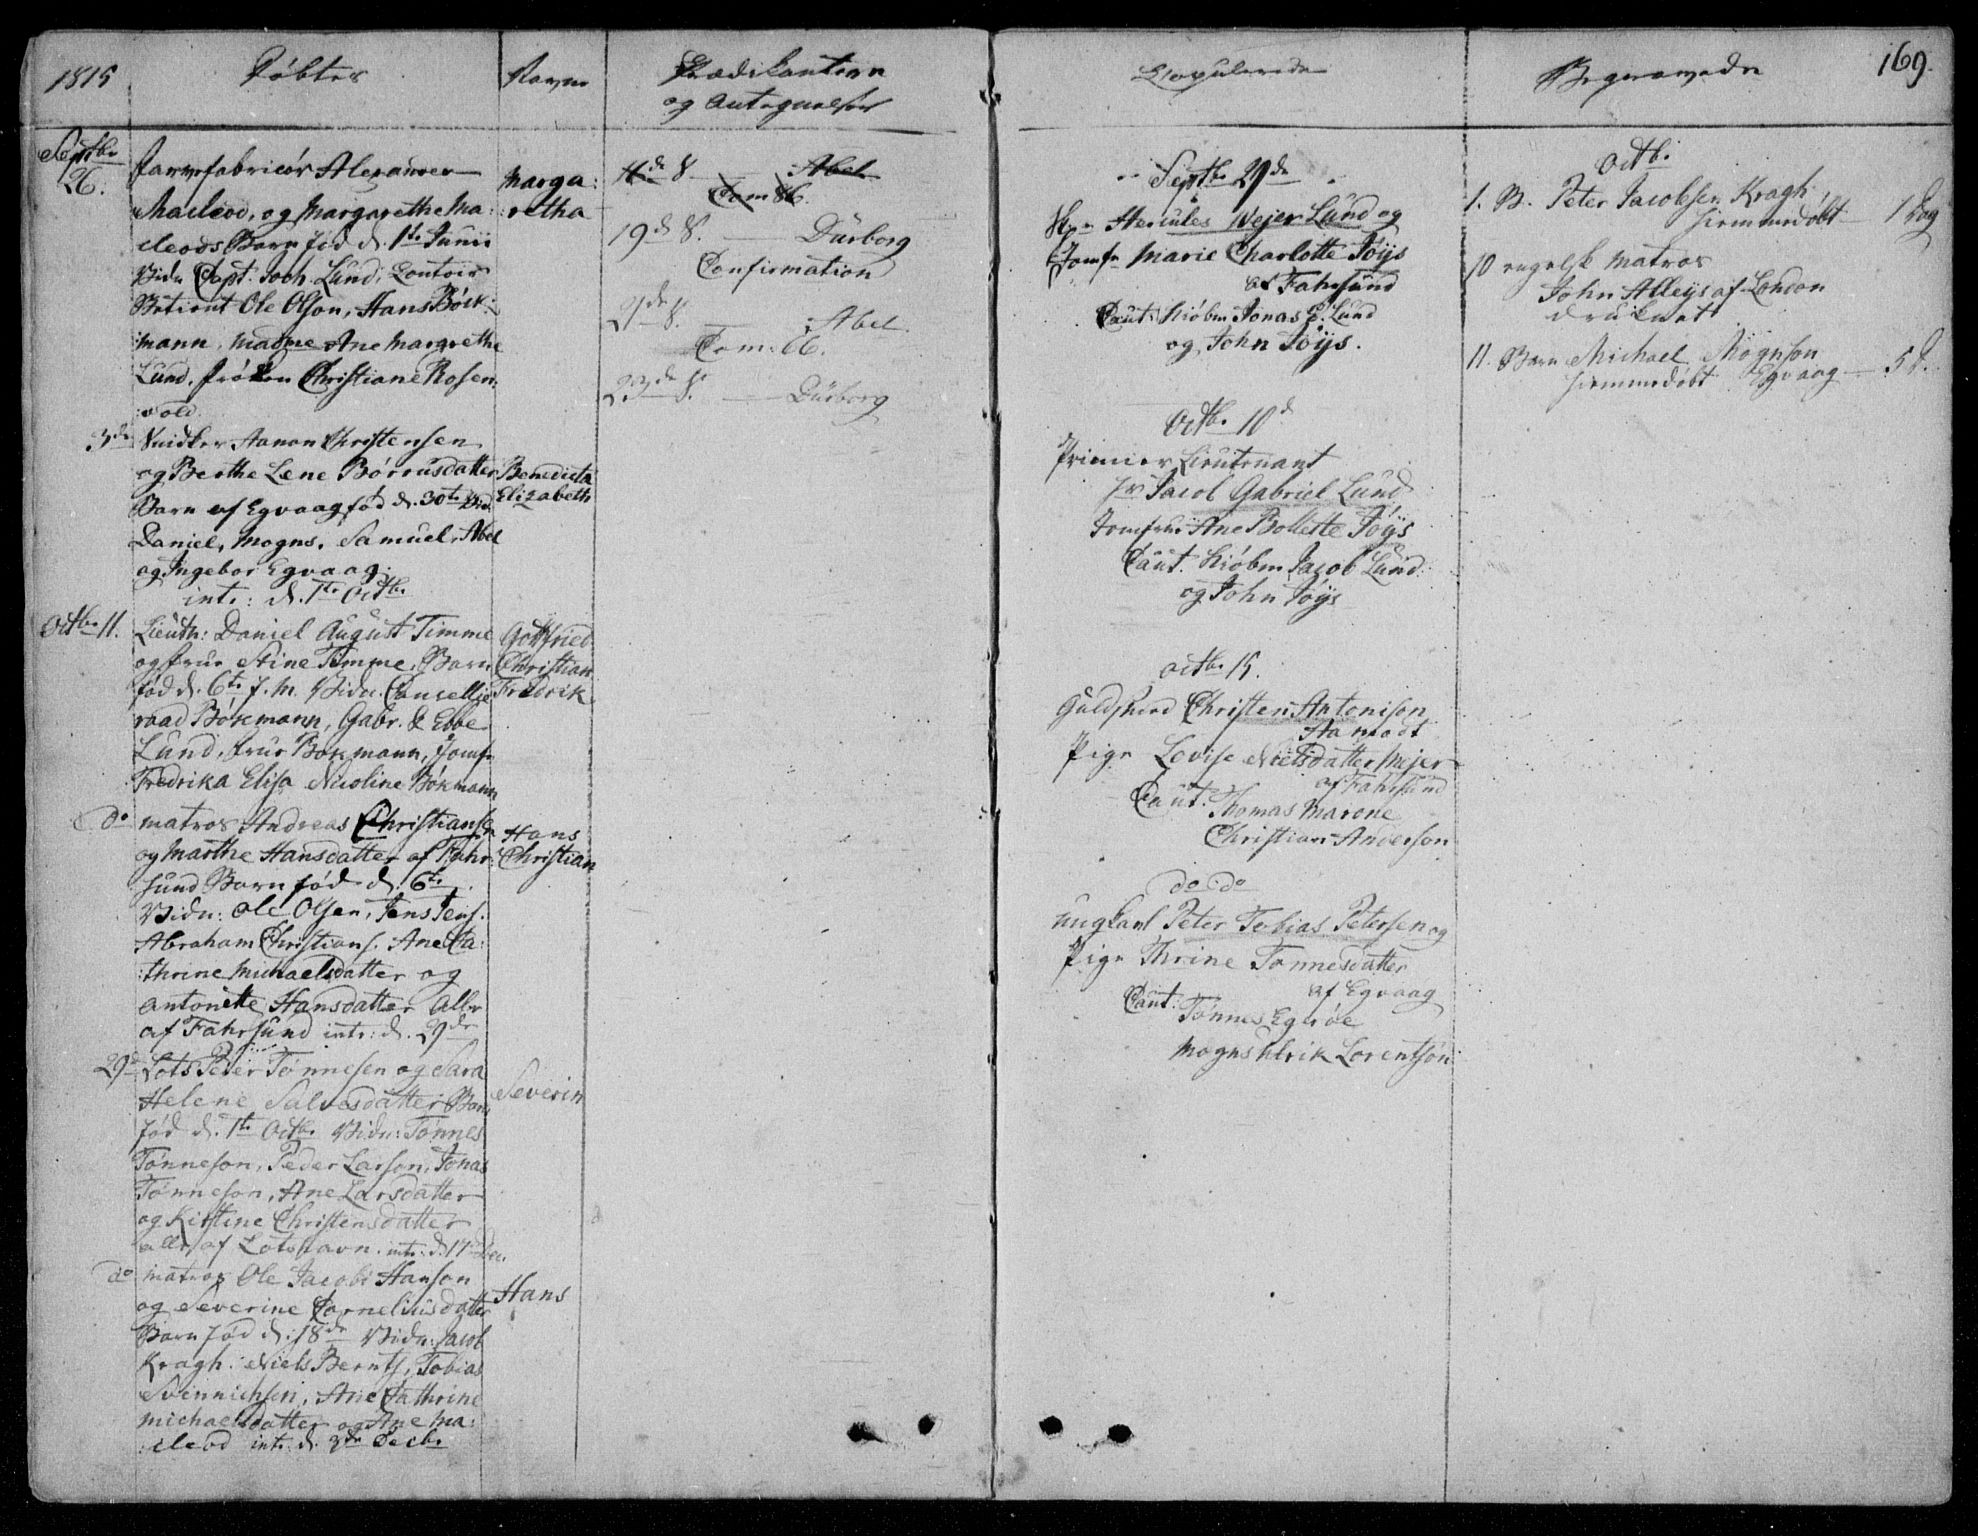 1815
Døbte
Navne
Prædikanterne
og Antegnelser
Copulerede
Begravede
169.
Septbr
26.
Farvefabricør Alexander
Macleod, og Margarethe Ma:
cleods Barn fød d. 1te Junii
Vidn Capt. Joch. Lund, Contoir
Betient Ole Olson, Hans Böck:
mann, Madme Ane Margrethe
Lund, frøken Christiane Rosen:
vold.
Marga:
retha
3de Snidker Aanon Christensen
og Berthe Lene Börrusdatter
Barn af Egvaag fød d. 30te
Daniel, Mogns, Samuel, Abel
og Ingebor Egvaag.
intr: d. 1te Octbr
Benedicta
Elizabeth
Octbr 11.
Lieutn: Daniel August Timme
og frue Stine Timme, Barn
fød d. 6te f. M. Vidn. Cancellie
raad Bökmann, Gabr. & Ebbe
Lund, frue Bökmann, Jomfr
Fredrika Elisa Nicoline Bökmann
Gottfried
Christian
Fredrik
do matros Andreas Christiansen
og Marthe Hansdatter af Fahr:
sund Barn fød d. 6te
Vidn: Ole Olsen, Jens Jens.
Abraham Christians. Ane Ca:
thrine Michaelsdatter og
Antonette Hansdatter alle
af Fahrsund intr: d. 29de
Hans
Christian
29de Lots Peder Tønnesen og Sara
Helene Salvesdatter Barn
fød d. 1te Octbr Vidn: Tønnes
Tönneson, Peder Larson, Jonas
Tönneson, Ane Larsdatter
og Kirstine Christensdatter
alle af Lotshavn. intr: d. 17
Severin
do matros Ole Jacob Hanson
og Severine Corneliusdatter
Barn fød d: 18de Vidn: Jacob
Kragh. Niels Bernts, Tobias
Svennichsen, Ane Cathrine
Michaelsdatter og Ane Ma:
cleod intr: d. 3de Decbr
Hans
11de S. Abel
Com: 86.
19de S. Dürborg
Confirmation
21de S. Abel.
Com: 66.
23de S. Dürborg
Septbr 29de
Hercules Wejer Lund og
Jomfr Marie Charlotte Jöys
af Fahrsund
Caut: Kiöbm Jonas E. Lund
og John Jöys.
Octbr 10de
Primier Lieutenant
Hr Jacob Gabriel Lund
Jomfrue Ane Bollette Jöys
Caut. Kiöbm Jacob Lund
og John Jöys
Octbr 15.
Guldsmed Christen Antonison
Aamodt
Pige Lovise Nielsdatter Mejer
af Fahrsund
Caut. Thomas Marone
Christian Anderson
do do
ungkarl Peter Tobias Petersen og
Pige Thrine Tønnesdatter
af Egvaag
Caut: Tønnes Egeröe
Mogns Ulrik Lorentson
Octbr
1. B. Peter Jacobsen Kragh
hiemmedøbt 1 Dag
10 engelsk matros
John Alleys af London
druknet
11. Barn Michael Mognson
hiemmedøbt Egvaag 5 D.